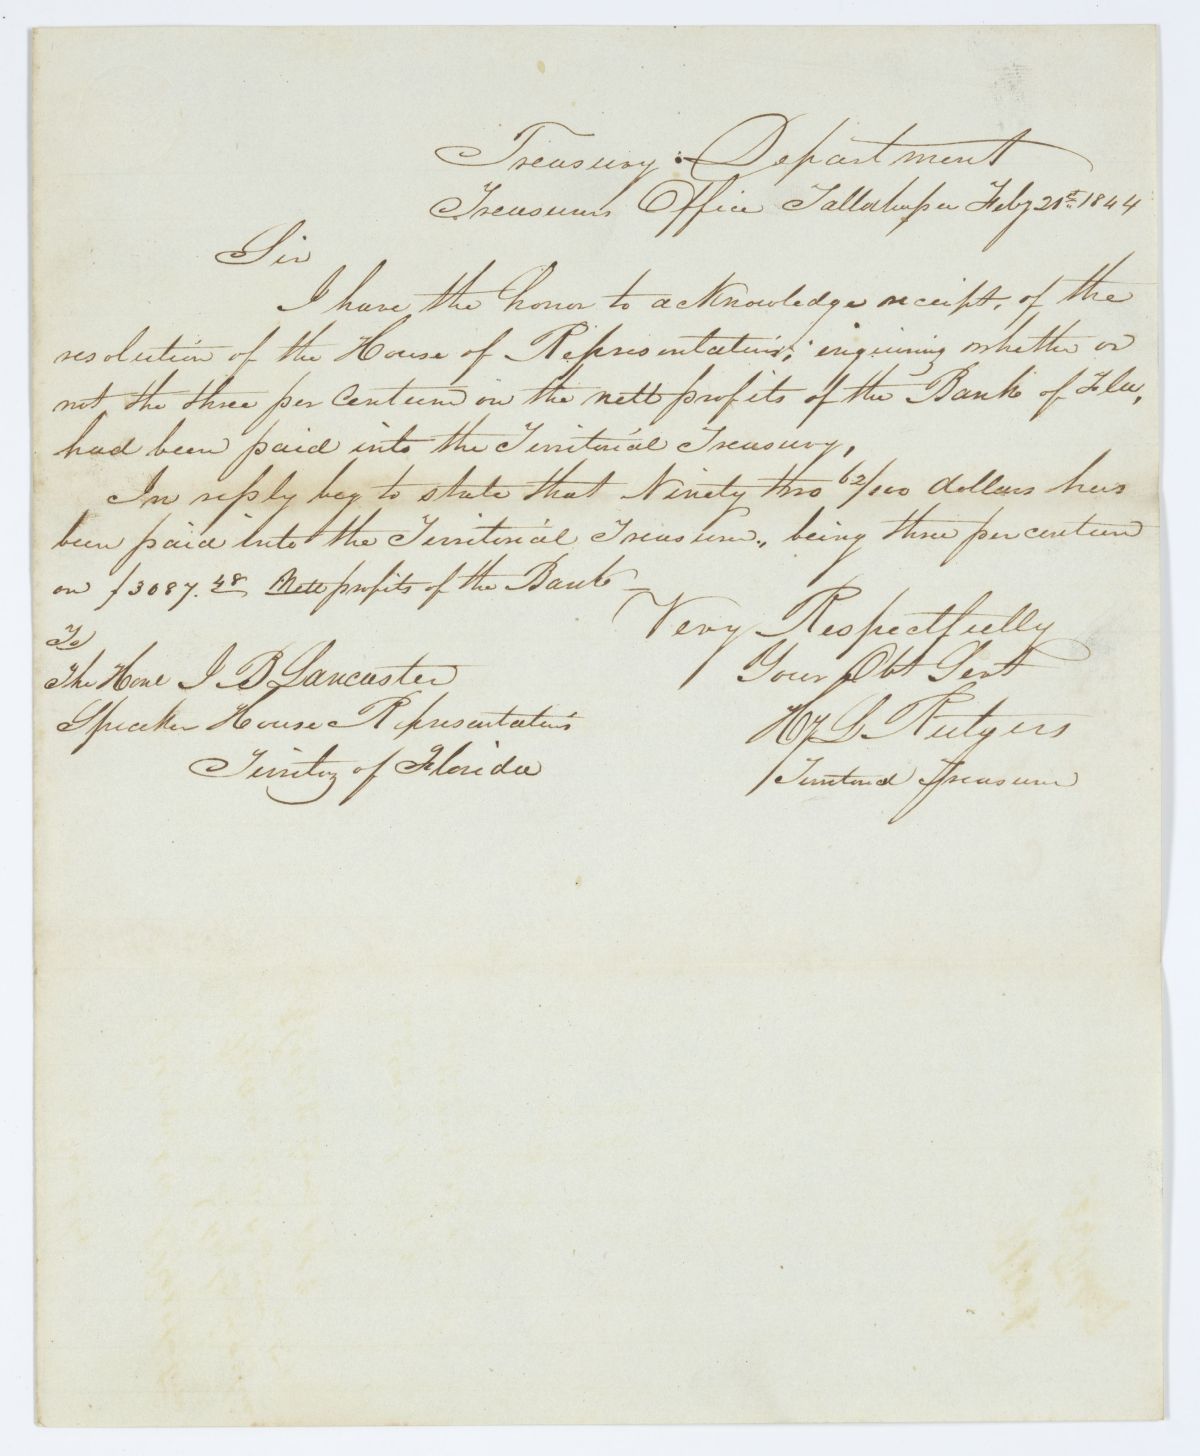 Treasury Department
Treasurers Office Tallahassee Feby 21st 1844
Sir
I have the honor to acknowledge receipt, of the
resolution of the House of Representatives, enquiring whether or
not the three per Centum on the nett profits of the Bank of Fla,
had been paid into the Territorial Treasury,
In reply beg to state that Ninety two 62/100 dollars has
been paid into the Territorial Treasury, being three per centum
on $3087.48 Nett profits of the Bank
Very Respectfully
Your Obt Servt
Hy L. Rutgers
Territorial Treasurer
To
The Honl J B Lancaster
Speaker House Representatives
Territory of Florida